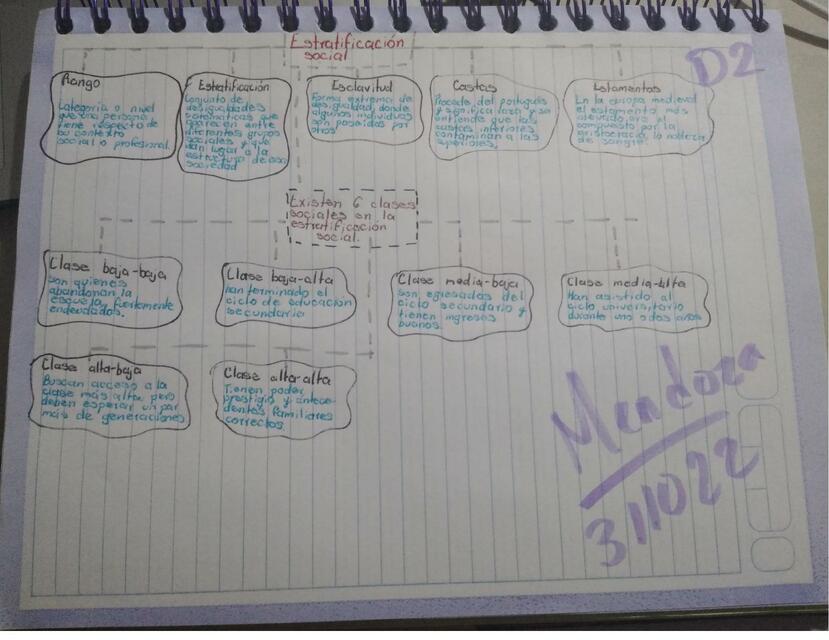 Estratificación
social
D2
Rango
Categoría o nivel
que una persona
tiene respecto de
su contexto
social o profesional.
Estratificación
Conjunto de
desigualdades
sistemáticas que
aparecen entre
diferentes grupos
sociales y que
dan lugar a la
estructura de
sociedad
Esclavitud
Forma extrema de
desigualdad, donde
algunos individuos
son poseídos por
otros
Castas
Procede del portugués
y significa raza y se
entiende que las
castas inferiores
contaminan a las
superiores.
Estamentos
En la europa medieval
el estamento más
elevado, era el
compuesto por la
aristocracia, la nobleza
de sangre.
Existen 6 clases
sociales en la
estratificación
social.
Clase baja-baja
Son quienes
abandonan la
escuela, fuertemente
endeudados.
Clase baja-alta
han terminado el
ciclo de educación
secundaria
Clase media-baja
Son egresadas del
ciclo secundario y
tienen ingresos
buenos.
Clase media-alta
Han asistido al
ciclo universitario
durante uno o dos años
Clase alta-baja
Buscan acceso a la
clase más alta, pero
deben esperar un par
más de generaciones
Clase alta-alta
Tienen poder,
prestigio y antece-
dentes familiares
correctos.
Mendoza
311022